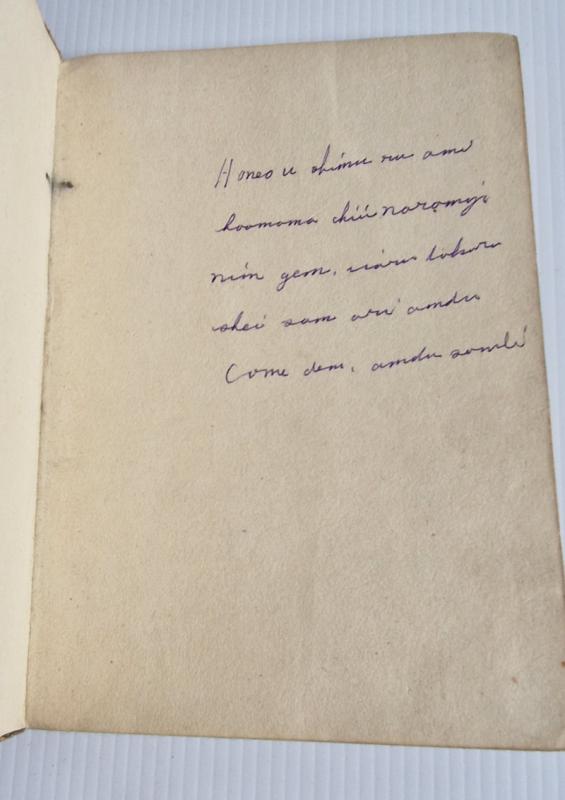 Honeo u shimu ru ame
hoomoma chíí noromyi
nim gem, uáru tokoro
shei sam aru amdu
Come dem, amdu somli